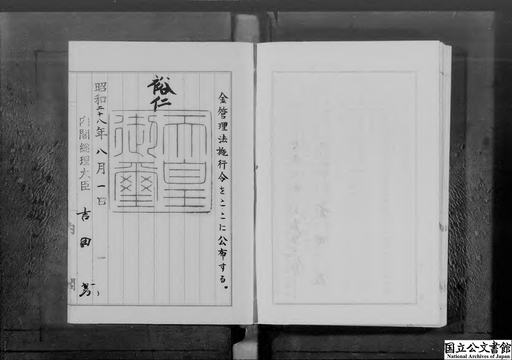 金管理法施行令をここに公布する。
裕仁
天皇
御璽
昭和二十八年八月一日
内閣総理大臣 吉田茂
国立公文書館
National Archives of Japan